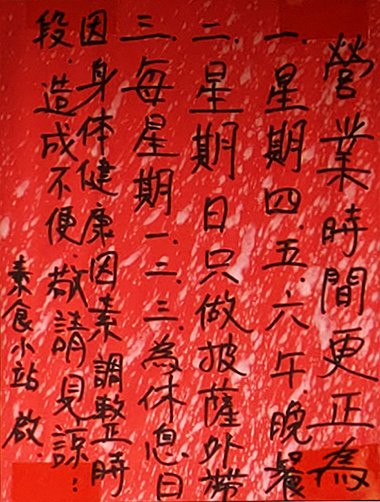 營業時間更正為
一.星期四.五.六午.晚餐
二.星期日只做披薩外帶
三.每星期一.二.三為休息日
因身体健康因素調整時
段.造成不便.敬請見諒:
素食小站 啟.